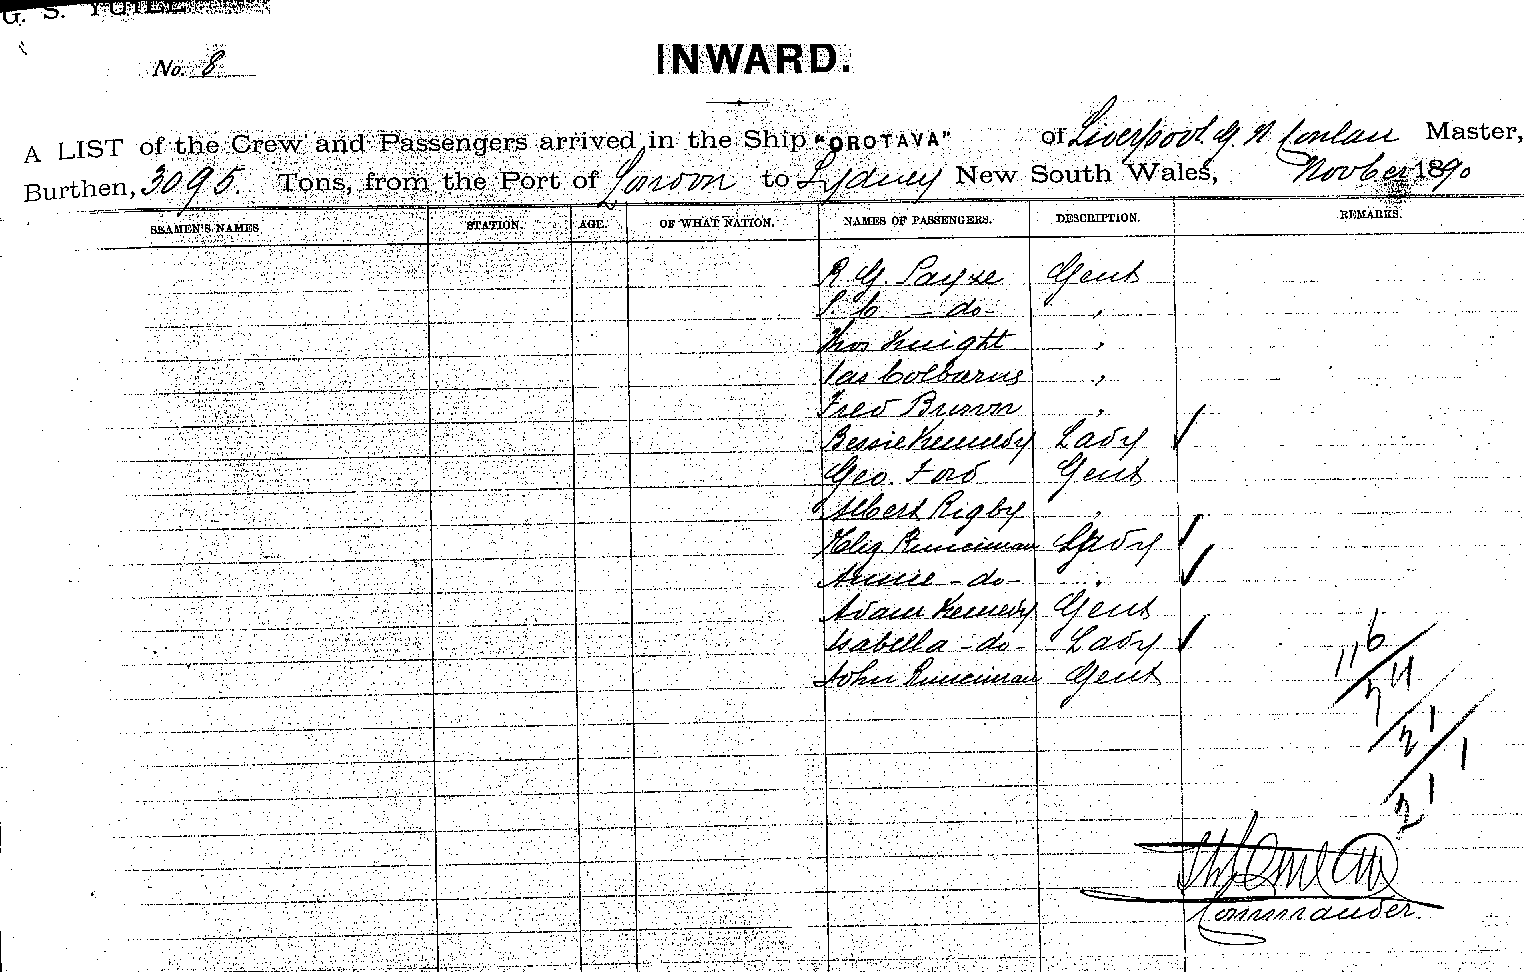 G. S. YUILL
No. 8
INWARD.
A LIST of the Crew and Passengers arrived in the Ship "OROTAVA" of Liverpool. G. N. Conlan Master,
Burthen, 3095. Tons, from the Port of London to Sydney New South Wales, Novber 1890
SEAMEN'S NAMES. STATION. AGE. OF WHAT NATION. NAMES OF PASSENGERS. DESCRIPTION. REMARKS.
R. G. Payze Gent
- do - "
Thos Knight "
Jas Colbarns "
Fred Brown "
Bessie Kennedy Lady
Geo. Ford Gent
Albert Rigby "
Runciman Lady
Annie - do - "
Adam Kennedy Gent
Isabella - do - Lady
John Runciman Gent
116
74
21
21
1
1
Commander.